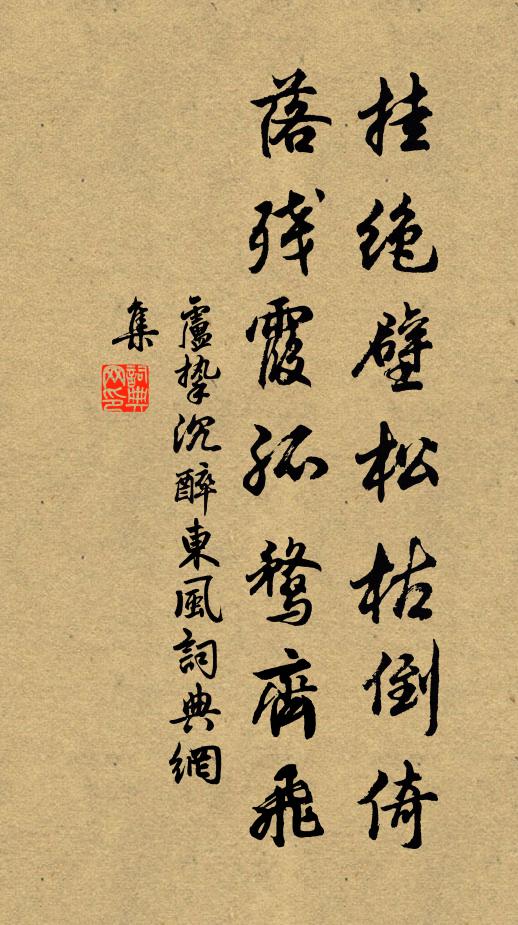 挂绝壁松枯倒倚
落残霞孤鹜齊飛
盧挚沉醉東風詞典網
集
詞典
网印